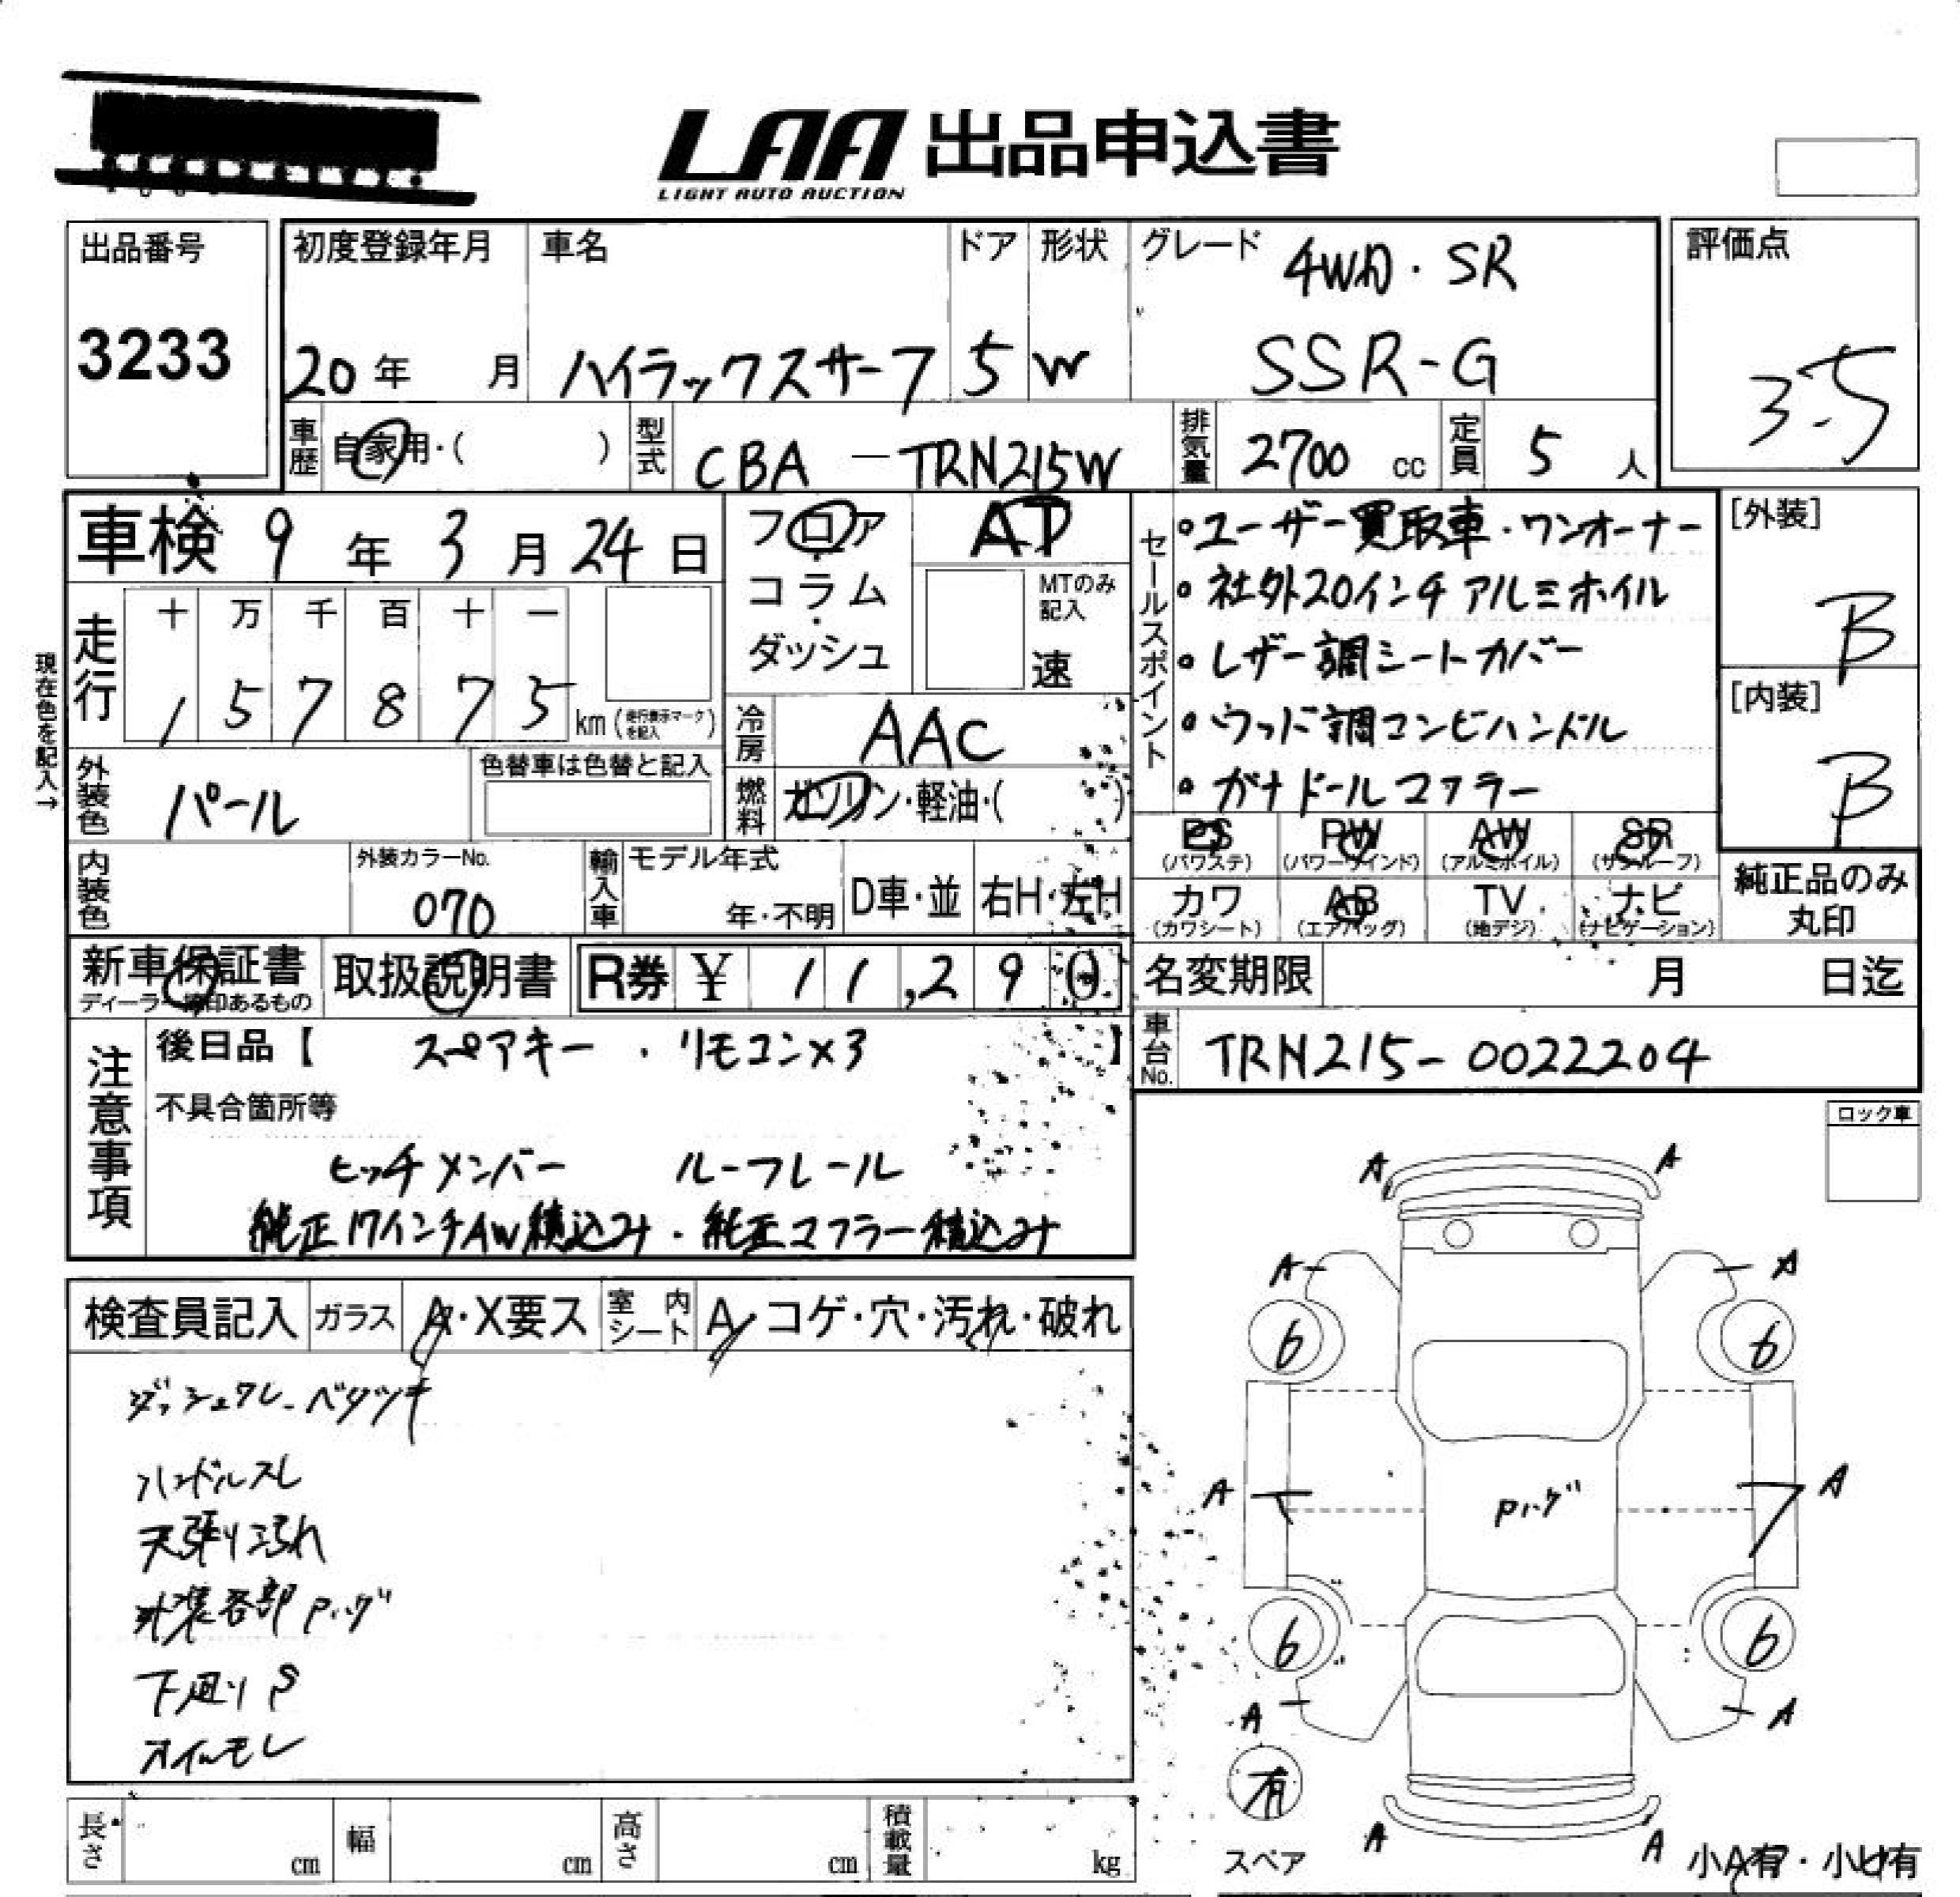 LAA 出品申込書
LIGHT AUTO AUCTION
出品番号
3233
初度登録年月
20年 月
車名
ハイラックスサーフ
ドア
5
形状
W
グレード
4WD・SR
SSR-G
評価点
3.5
車歴 自家用・( )
型式 CBA - TRN215W
排気量 2700 cc
定員 5 人
車検 9 年 3 月 24 日
現在色を記入→
走行
十 万 千 百 十 一
1 5 7 8 7 5 km (走行表示マークを記入)
フロア・コラム・ダッシュ
AT
MTのみ記入
速
冷房 AAC
燃料 ガソリン・軽油・( )
外装色 パール
色替車は色替と記入
内装色
外装カラーNo.
070
輸入車
モデル年式
年・不明
D車・並
右H・左H
セールスポイント
・ユーザー買取車・ワンオーナー
・社外20インチアルミホイル
・レザー調シートカバー
・ウッド調コンビハンドル
・ガナドールマフラー
[外装]
B
[内装]
B
PS (パワステ)
PW (パワーウインド)
AW (アルミホイル)
SR (サンルーフ)
カワ (カワシート)
AB (エアバッグ)
TV (地デジ)
ナビ (ナビゲーション)
純正品のみ丸印
新車保証書
ディーラー捺印あるもの
取扱説明書
R券 ¥ 11,290
名変期限 月 日迄
車台No. TRN215-0022204
注意事項
後日品【 スペアキー・リモコン×3 】
不具合箇所等
ヒッチメンバー ルーフレール
純正17インチAW積込み・純正マフラー積込み
ロック車
検査員記入
ガラス A・X要ス
室内シート A・コゲ・穴・汚れ・破れ
ダッシュワレ-ベタツキ
ハンドルスレ
天張り汚れ
外装各部Pハゲ
下廻りS
オイルモレ
A A
A A
6 6
A A
Pハゲ
6 6
A A
有
スペア
A A
小A有・小U有
長さ cm
幅 cm
高さ cm
積載量 kg